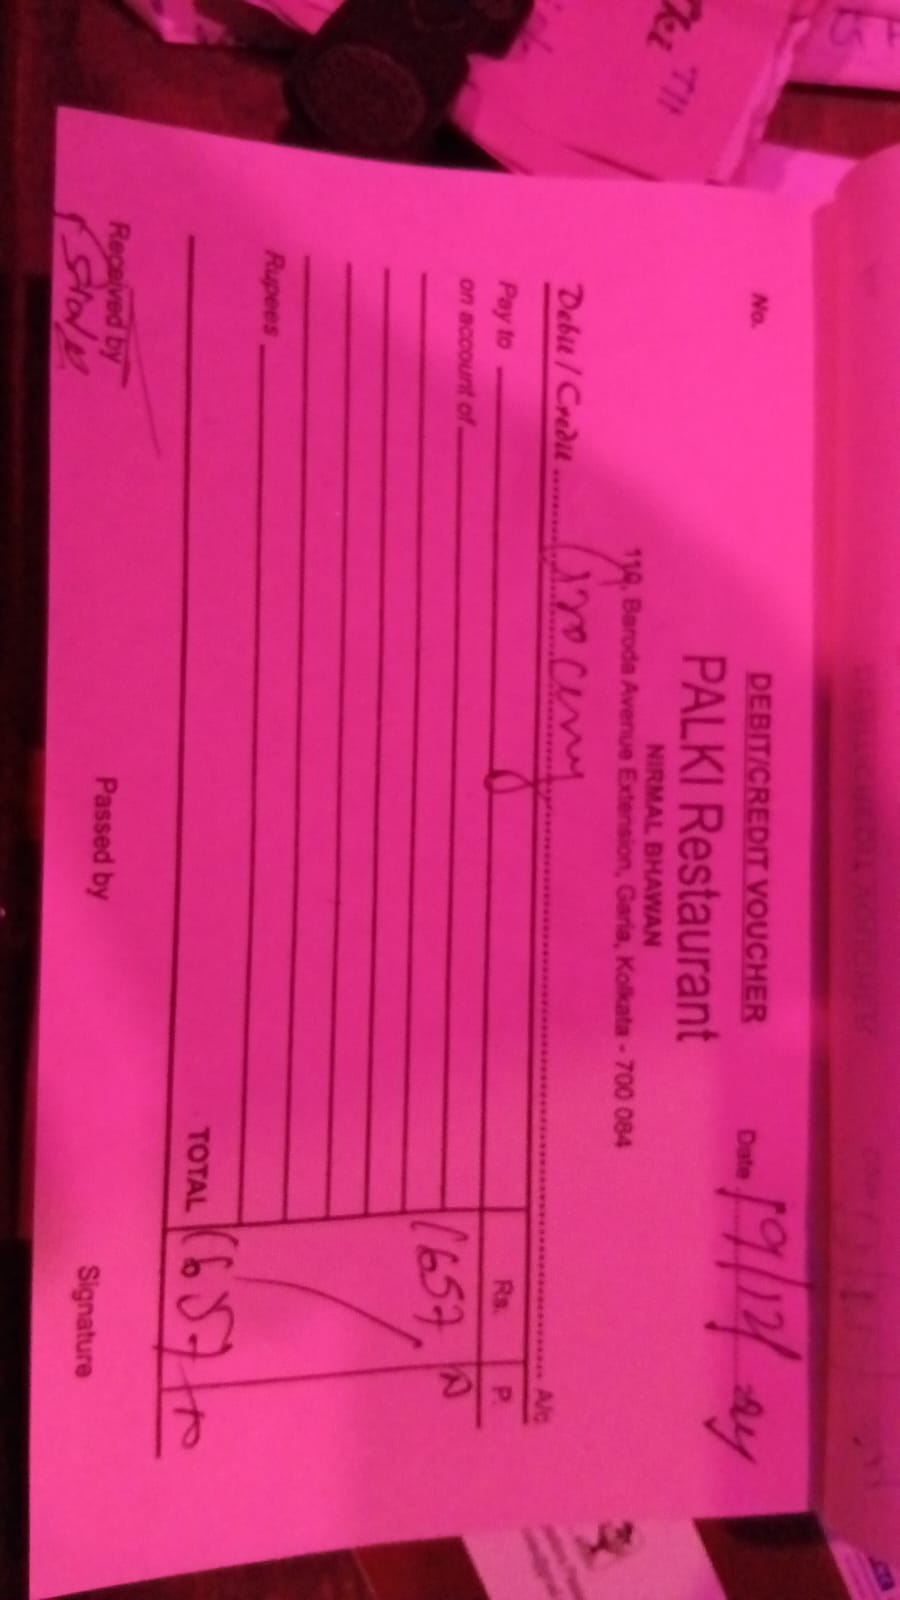 DEBIT/CREDIT VOUCHER
No. Date 19/12/24
PALKI Restaurant
NIRMAL BHAWAN
119, Baroda Avenue Extension, Garia, Kolkata - 700 084
Debit / Credit Grocery A/c
Pay to Rs. P.
on account of 1657.
Rupees
TOTAL 1657
Received by Passed by Signature